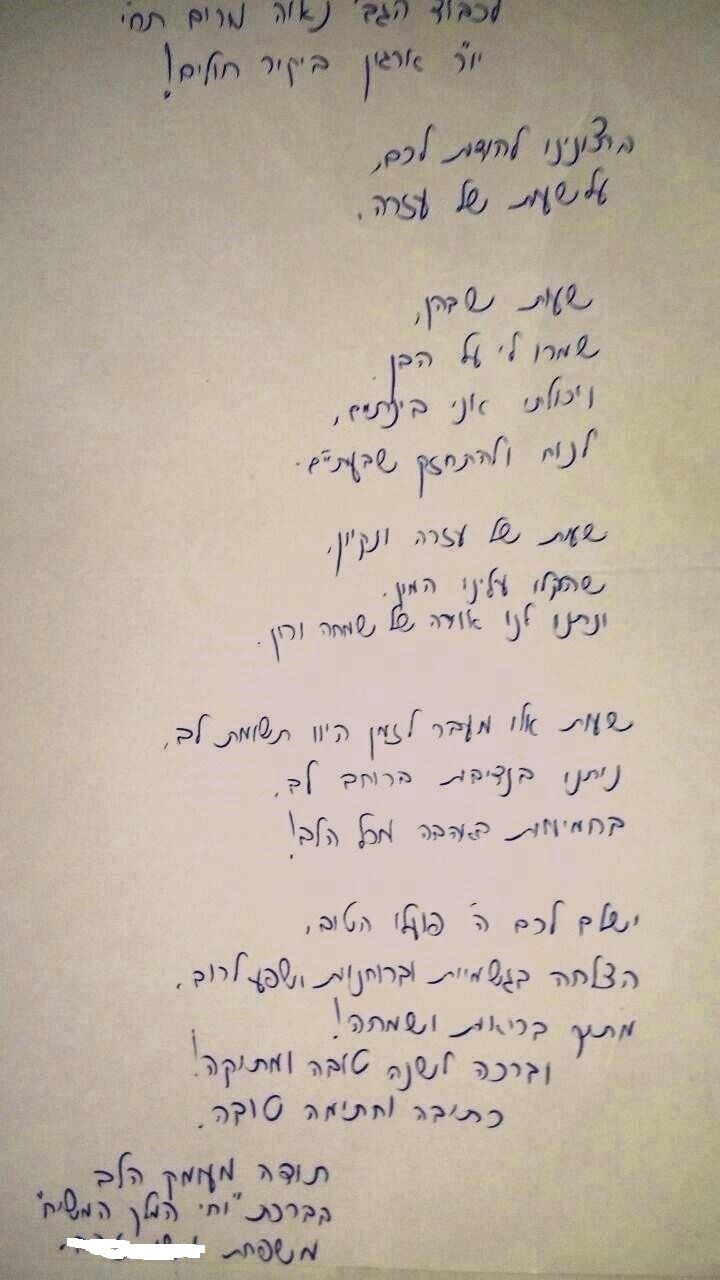 לכבוד הגב' נאוה מרים תחי'
יו"ר ארגון ביקור חולים!
ברצונינו להודות לכם,
על שעות של עזרה.
שעות שבהן,
שמרו לי על הבן
ויכולתי אני בינתיים,
לנוח ולהתחזק שבעתיים.
שעות של עזרה ונקיון,
שהקלו עלינו המון.
ונתנו לנו אוירה של שמחה ורון.
שעות אלו מעבר לזמן היוו תשומת לב,
ניתנו בנדיבות ברוחב לב,
בחמימות באהבה מכל הלב!
ישלם לכם ה' פועלו הטוב,
הצלחה בגשמיות וברוחניות ושפע לרוב.
מתוך בריאות ושמחה!
וברכה לשנה טובה ומתוקה!
כתיבה וחתימה טובה.
תודה מעומק הלב
בברכת "יחי המלך המשיח"
משפחת